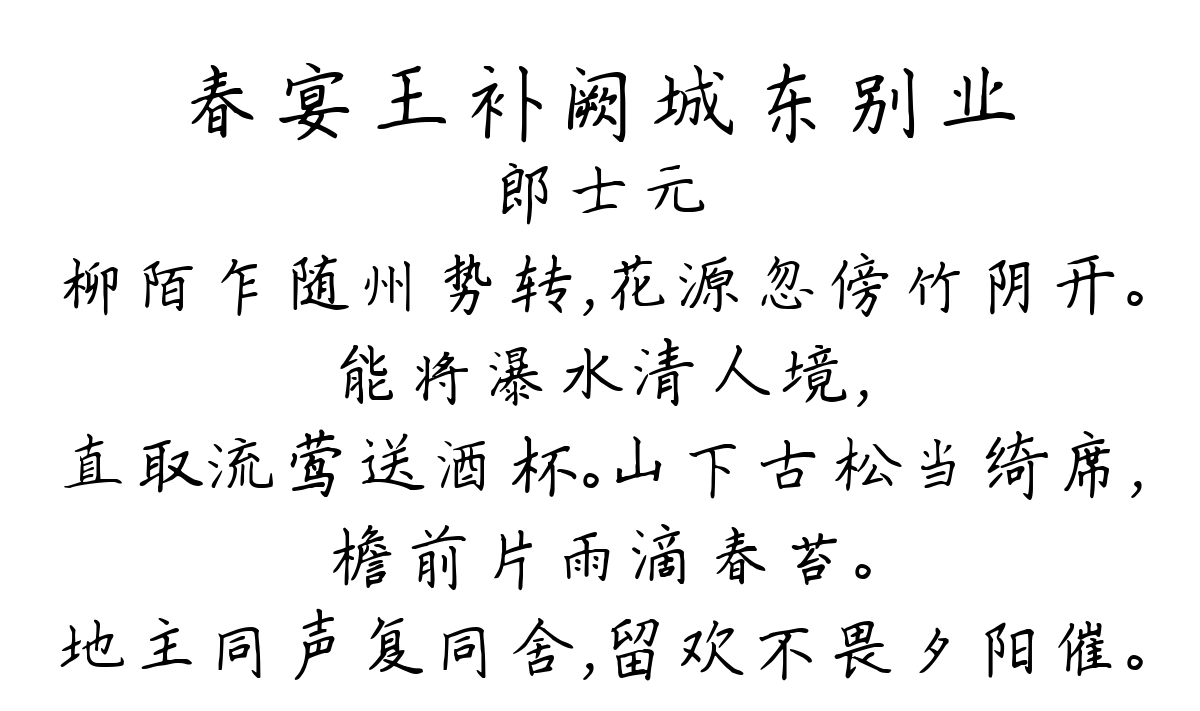 春宴王补阙城东别业
郎士元
柳陌乍随州势转,花源忽傍竹阴开。
能将瀑水清人境,
直取流莺送酒杯。山下古松当绮席,
檐前片雨滴春苔。
地主同声复同舍,留欢不畏夕阳催。